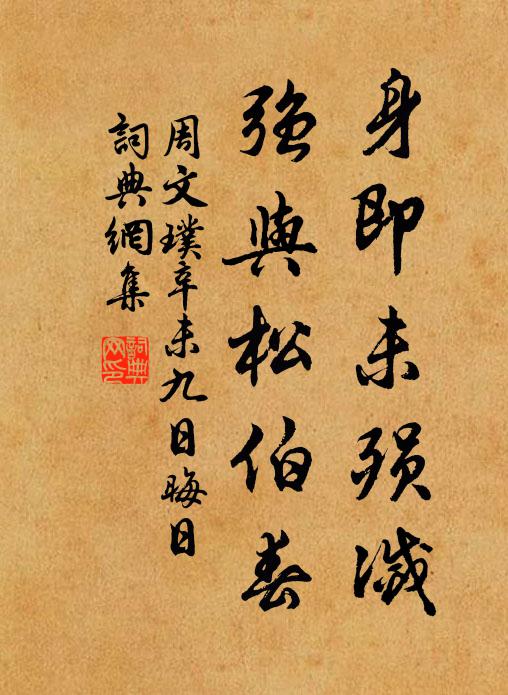 身即未殞滅
強與松伯春
周文璞辛未九日晦日
詞典網集
詞典網印